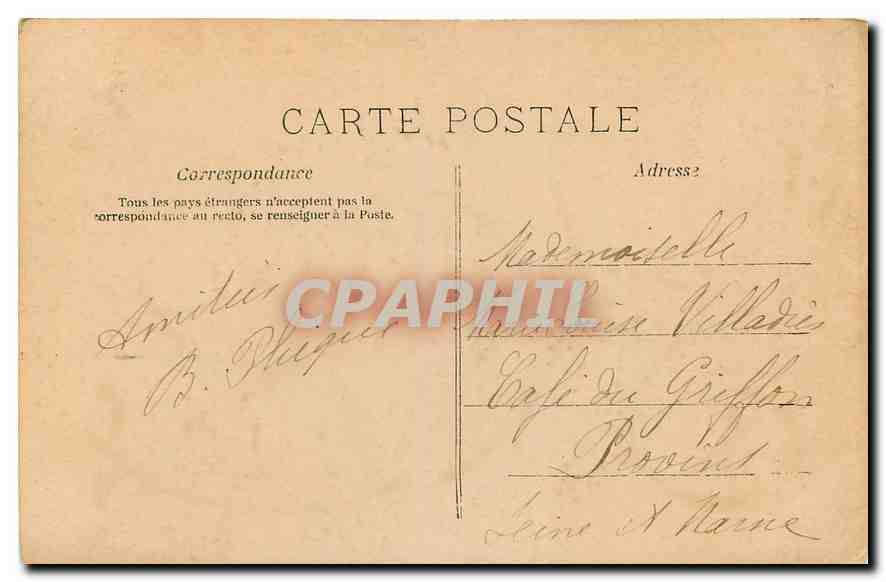 CARTE POSTALE
Correspondance
Tous les pays étrangers n'acceptent pas la
correspondance au recto, se renseigner à la Poste.
Amitiés
B.
Adresse
Mademoiselle
Villadier
Café du Griffon
Provins
Seine et Marne
CPAPHIL